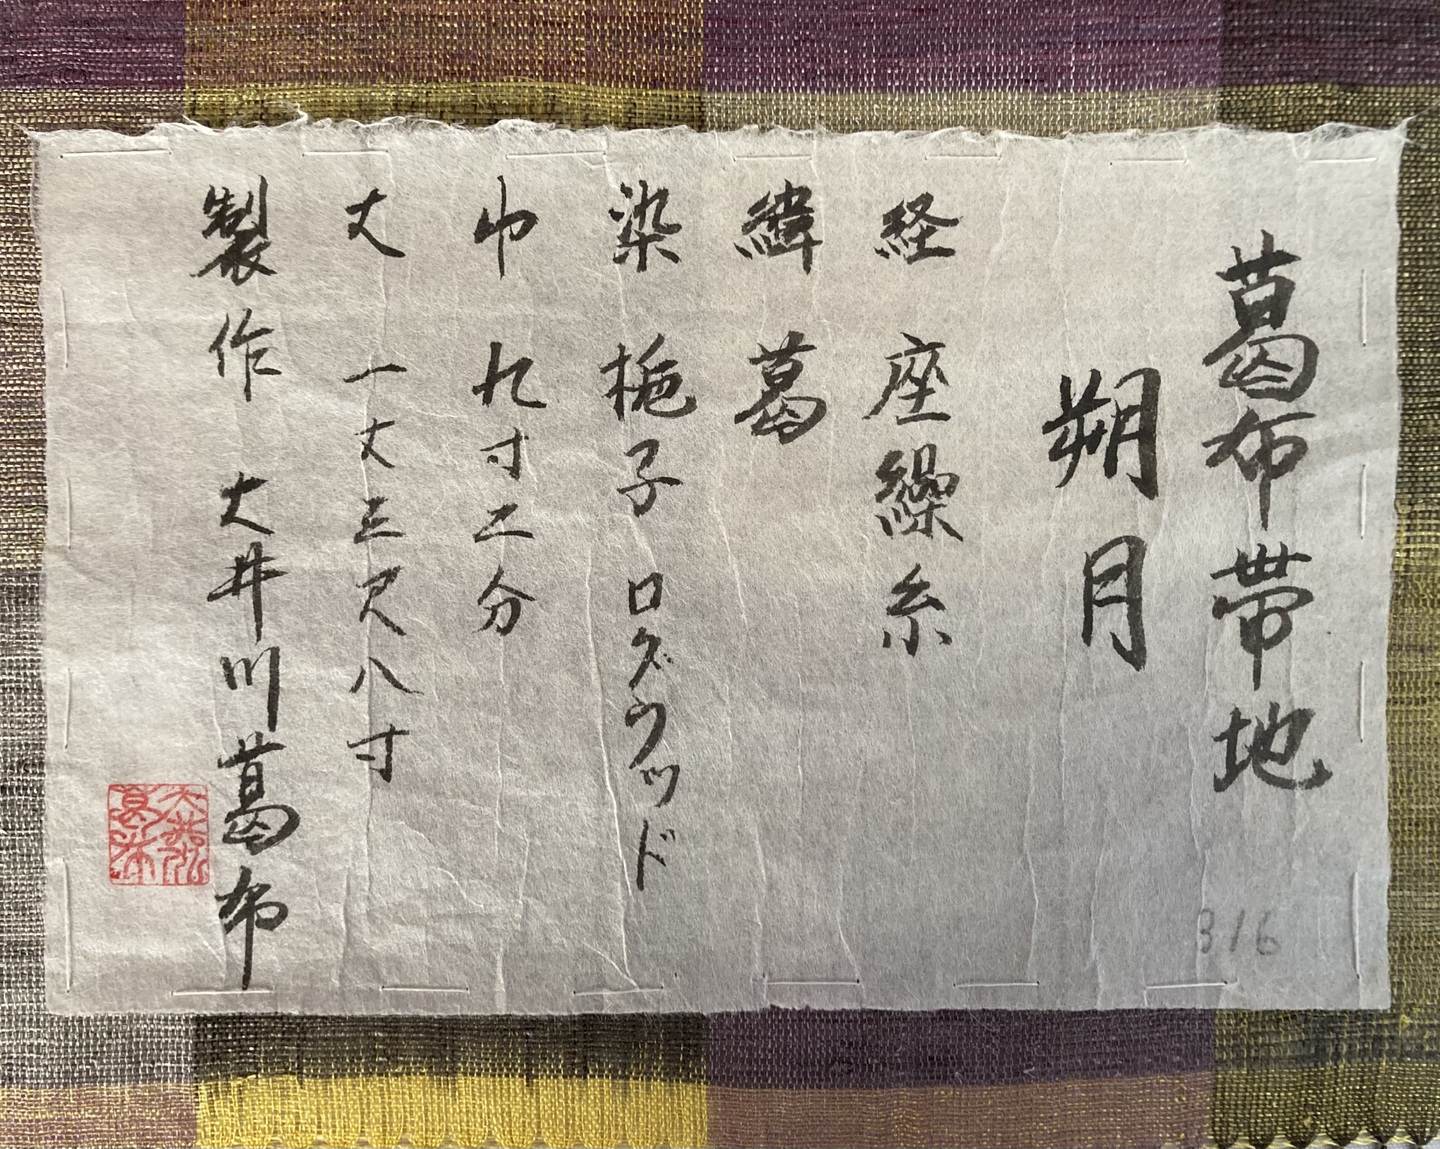 葛布帯地
朔月
経 座繰糸
緯 葛
染 梔子 ログウッド
巾 九寸二分
丈 一丈三尺八寸
製作 大井川葛布
316